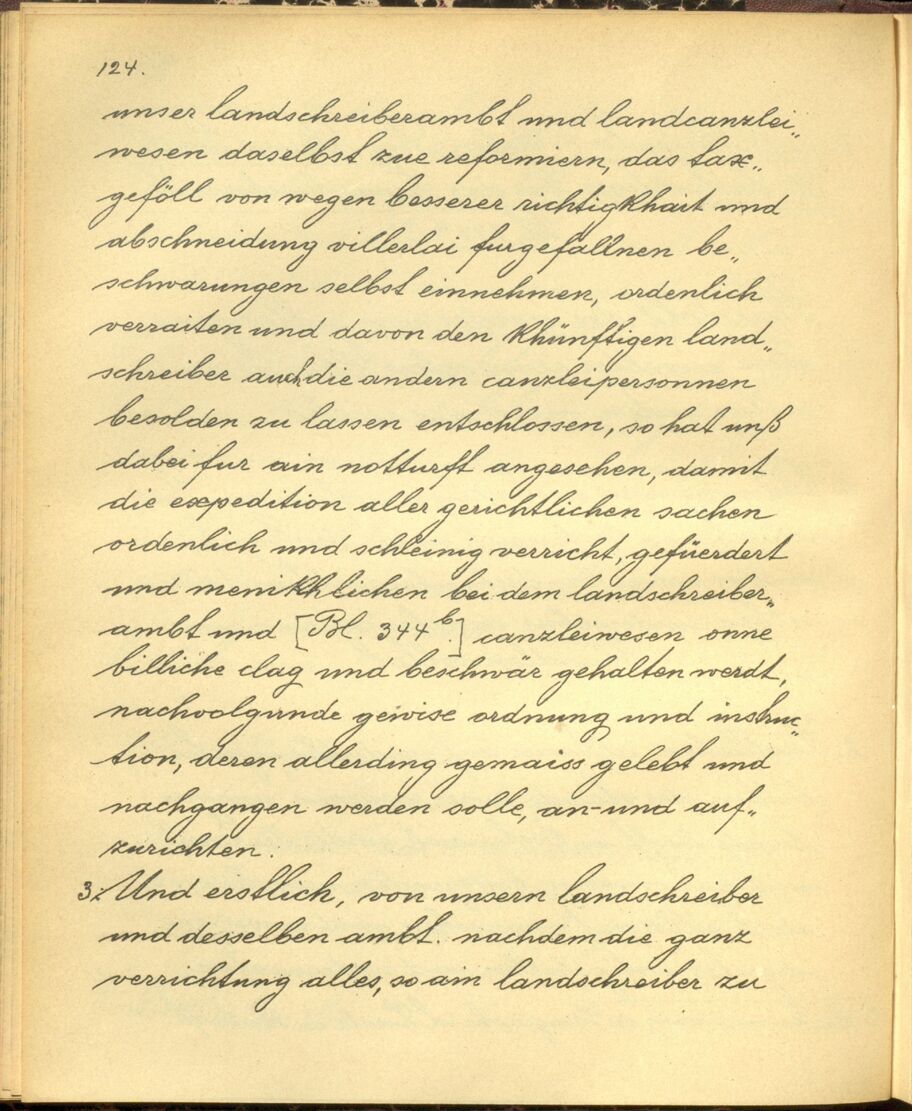 124.
unser landschreiberambt und landcanzlei„
wesen daselbst zue reformiern, das tax„
geföll von wegen besserer richtigkhait und
abschneidung villerlai furgefallnen be„
schwarungen selbst einnehmen, ordenlich
verraiten und davon den khünftigen land„
schreiber auch die andern canzleipersonnen
besolden zu lassen entschlossen, so hat unß
dabei fur ain notturft angesehen, damit
die expedition aller gerichtlichen sachen
ordenlich und schleinig verricht, gefüerdert
und menikhlichen bei dem landschreiber„
ambt und [Bl. 344b.] canzleiwesen onne
billiche clag und beschwär gehalten werdt,
nachvolgunde gewise ordnung und instruc„
tion, deren allerding gemaiss gelebt und
nachgangen werden solle, an- und auf„
zurichten.
3: Und erstlich, von unsern landschreiber
und desselben ambt. nachdem die ganz
verrichtung alles, so ain landschreiber zu